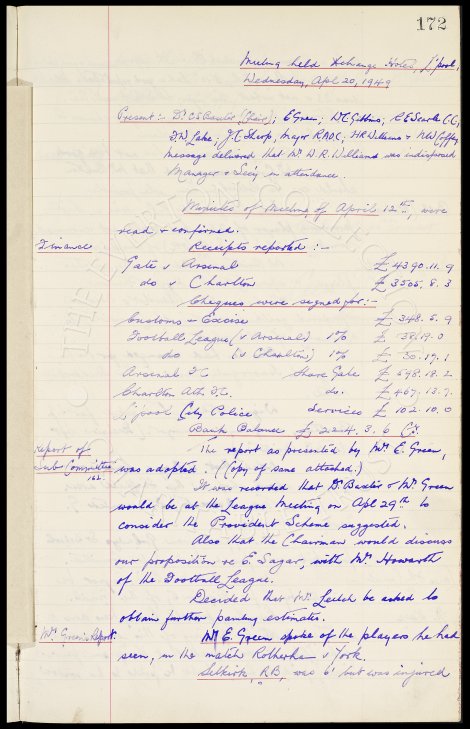 172
Meeting held Xchange Hotel, L'pool,
Wednesday, Apl 20, 1949
Present:- Dr C S Baxter (Chair); E Green; W C Gibbins, R E Searle CC;
D.W. Lake; J.C. Sharp, Major RADC, HR Williams & NW Coffey
message delivered that Mr W.R. Williams was indisposed
Manager & Sec'y in attendance.
Minutes of Meeting of April 12th, were
read & confirmed.
Finance
Receipts reported :-
Gate v Arsenal £ 4390.11.9
do v Charlton £ 3505.8.3
Cheques were signed for:-
Customs & Excise £ 348.5.9
Football League (v Arsenal) 1% £ 38.19.0
do (v Charlton) 1% £ 30.19.1
Arsenal FC Share Gate £ 598.18.2
Charlton Ath F.C. do. £ 467.13.7
L'pool City Police Services £ 102.10.0
Bank Balance £ 224.3.6 Cr.
Report of
Sub Committee
162.
The report as presented by Mr E. Green,
was adopted (Copy of same attached.)
It was recorded that Dr. Baxter & Mr Green
would be at the League Meeting on Apl 29th to
consider the Provident Scheme suggested.
Also that the Chairman would discuss
our proposition re E. Sagar, with Mr Howarth
of the Football League.
Decided that Mr Leitch be asked to
obtain further painting estimates.
Mr Green's Report
Mr E. Green spoke of the players he had
seen, in the match Rotherham v York.
Selkirk, RB, was 6' but was injured